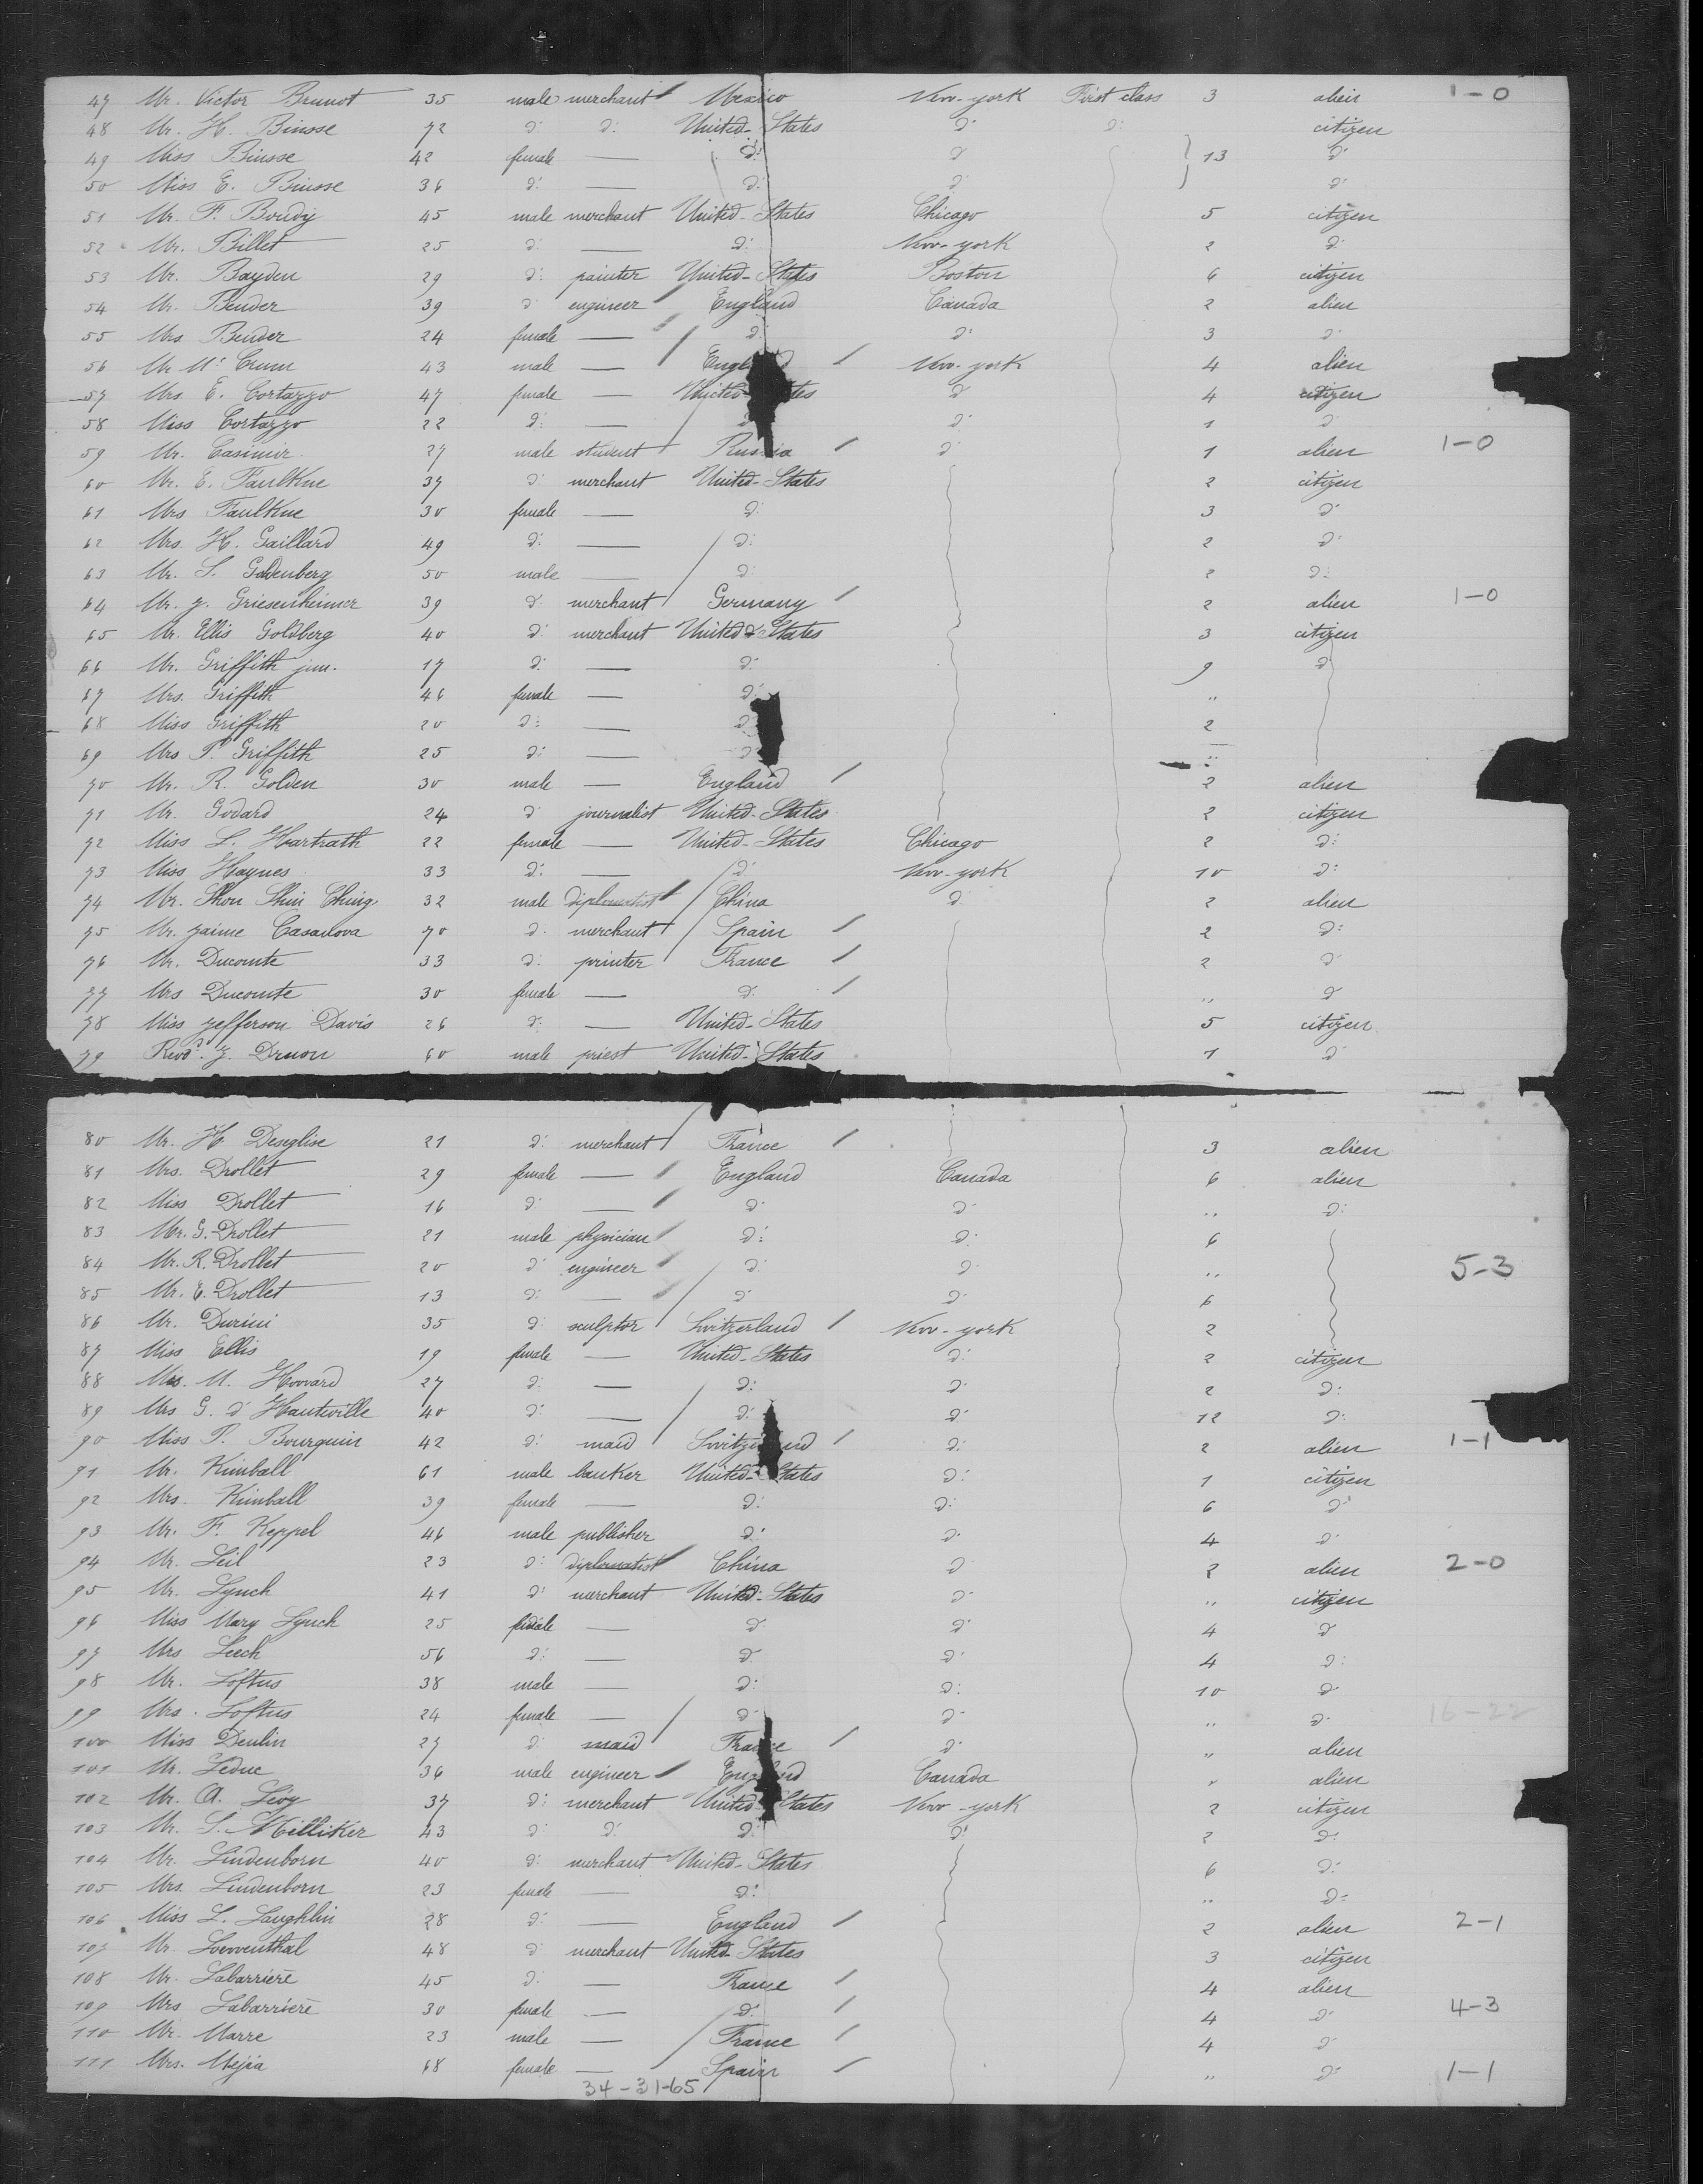 47 Mr. Victor Brunot 35 male merchant Mexico New-york First class 3 alien 1-0
48 Mr. H. Binsse 72 d: d: United-States d: d: citizen
49 Miss Binsse 42 female — d: d } 13 d:
50 Miss E. Binsse 36 d: — d: d d:
51 Mr. F. Boudy 45 male merchant United-States Chicago 5 citizen
52 Mr. Billet 25 d: — d: New-york 2 d:
53 Mr. Bayden 29 d: painter United-States Boston 6 citizen
54 Mr. Bender 39 d: engineer England Canada 2 alien
55 Mrs Bender 24 female — d: d: 3 d:
56 Mr Mc Crum 43 male — England New-york 4 alien
57 Mrs E. Cortazzo 47 female — United-States d: 4 citizen
58 Miss Cortazzo 22 d: — d: d: 1 d
59 Mr. Casimir 27 male student Russia d: 1 alien 1-0
60 Mr. E. Faulkne 37 d: merchant United-States 2 citizen
61 Mrs Faulkne 30 female — d: 3 d:
62 Mrs. H. Gaillard 49 d: — d: 2 d:
63 Mr. S. Goldenberg 50 male — d: 2 d:
64 Mr. J. Griesenheimer 39 d: merchant Germany 2 alien 1-0
65 Mr. Ellis Goldberg 40 d: merchant United States 3 citizen
66 Mr. Griffith jun. 17 d: — d: 9 d
67 Mrs. Griffith 46 female — d: "
68 Miss Griffith 20 d: — d: 2
69 Mrs P. Griffith 25 d: — d: "
70 Mr. R. Golden 30 male — England 2 alien
71 Mr. Godard 24 d journalist United-States 2 citizen
72 Miss L. Hartrath 22 female — United-States Chicago 2 d:
73 Miss Haynes 33 d: — d: New-york 10 d:
74 Mr. Shou Shin Ching 32 male diplomatist China d 2 alien
75 Mr. Jaime Casanova 70 d: merchant Spain 2 d:
76 Mr. Ducomte 33 d: printer France 2 d:
77 Mrs Ducomte 30 female — d: " d
78 Miss Jefferson Davis 26 d: — United-States 5 citizen
79 Revd. J. Druon 60 male priest United-States 1 d:
80 Mr. H Deseglise 21 d: merchant France 3 alien
81 Mrs. Drollet 29 female — England Canada 6 alien
82 Miss Drollet 16 d: — d: d: " d:
83 Mr. G. Drollet 21 male physician d: d: 6
84 Mr. R. Drollet 20 d: engineer d: d: " 5-3
85 Mr. E. Drollet 13 d: — d: d: 6
86 Mr. Durini 35 d: sculptor Switzerland New-york 2
87 Miss Ellis 19 female — United-States d: 2 citizen
88 Mrs. M. Howard 27 d: — d: d: 2 d:
89 Mrs G. d' Hauteville 40 d: — d: d: 12 d:
90 Miss P. Bourquin 42 d: maid Switzerland d: 2 alien 1-1
91 Mr. Kimball 61 male banker United-States d: 1 citizen
92 Mrs. Kimball 39 female — d: d: 6 d:
93 Mr. F. Keppel 46 male publisher d: d: 4 d:
94 Mr. Leil 23 d: diplomatist China d 2 alien 2-0
95 Mr. Lynch 41 d: merchant United-States d: " citizen
96 Miss Mary Lynch 25 female — d: d: 4 d
97 Mrs Leech 56 d: — d: d: 4 d:
98 Mr. Loftus 38 male — d: d: 10 d:
99 Mrs. Loftus 24 female — d: d: " d: 16-22
100 Miss Deulin 27 d: maid France d: " alien
101 Mr. Leduc 36 male engineer England Canada " alien
102 Mr. A. Levy 37 d: merchant United-States New-york 2 citizen
103 Mr. S. Milliker 43 d: d: d: d: 2 d:
104 Mr. Lindenborn 40 d: merchant United-States 6 d:
105 Mrs. Lindenborn 23 female — d: " d:
106 Miss L. Laughlin 28 d: — England 2 alien 2-1
107 Mr. Loewenthal 48 d: merchant United States 3 citizen
108 Mr. Labarrière 45 d: — France 4 alien
109 Mrs Labarrière 30 female — d: 4 d: 4-3
110 Mr. Marre 23 male — France 4 d
111 Mrs. Mejia 68 female — Spain " d: 1-1
34-31-65